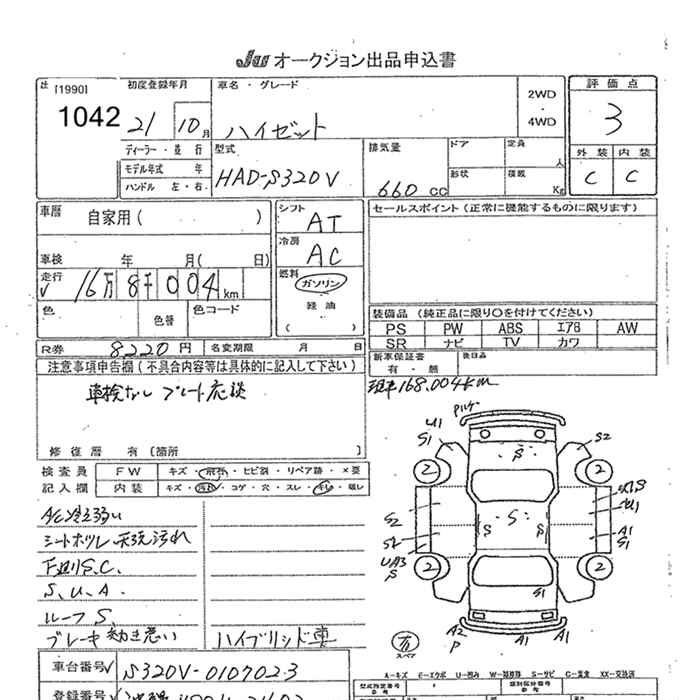 Ju オークション出品申込書
[1990]
1042
初度登録年月
21 10月
車名・グレード
ハイゼット
2WD
・
4WD
評価点
3
外装 内装
C C
ディーラー・並行
モデル年式 年
ハンドル 左・右
型式
HAD-S320V
排気量
660 CC
ドア 定員 人
形状 積載 Kg
車歴
自家用( )
車検 年 月( 日)
走行
16万8千004km
色 色替 色コード
シフト
AT
冷房
AC
燃料
ガソリン
軽油
( )
セールスポイント(正常に機能するものに限ります)
装備品(純正品に限り○を付けてください)
PS PW ABS エアB AW
SR ナビ TV カワ
R券 8220円 名変期限 月 日
新車保証書 後日品
有・無
注意事項申告欄(不具合内容等は具体的に記入して下さい)
車検なし プレート応談
現車168.004km
修復歴 有〔箇所 〕
検査員 FW キズ・飛石・ヒビ割・リペア跡・×要
記入欄 内装 キズ・汚れ・コゲ・穴・スレ・キレ・破レ
AC冷え弱い
シートホツレ 天張汚れ
下廻りS.C.
S、U、A.
ルーフ S、
ブレーキ効き悪い
ハイブリッド車
U1
S1
S2
2
2
S
S2
S
S
S
U1
A1
S1
S2
UA3
S
2
2
S1
A2
P
A1
A1
スペア
車台番号 S320V-0107023
A−キズ E−エクボ U−凹み W−補修跡 S−サビ C−腐食 XX−交換済
型式指定番号 類別区分番号
登録番号